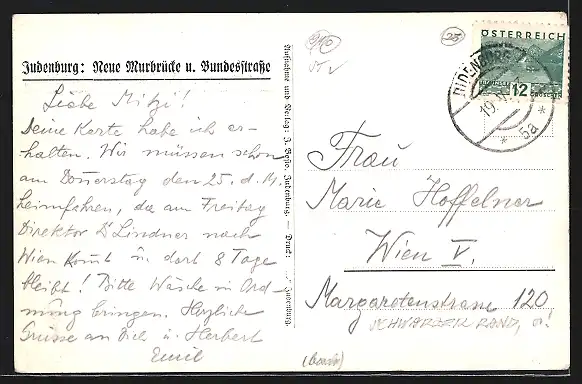 Judenburg: Neue Murbrücke u. Bundesstraße
Liebe Mitzi!
Deine Karte habe ich er-
halten. Wir müssen schon
am Donnerstag den 25. d. M.
heimfahren, da am Freitag
Direktor Dr Lindner nach
Wien kommt u. dort 8 Tage
bleibt! Bitte Wäsche in Ord-
nung bringen. Herzliche
Grüsse an Dich u. Herbert
Emil
Aufnahme und Verlag: J. Judenburg. — Druck: Judenburg.
25
ÖSTERREICH
12
GROSCHEN
JUDENBURG
19
* 5a *
Frau
Marie Hoffelner
Wien V.
Margaretenstrasse 120
SCHWARZER RAND,